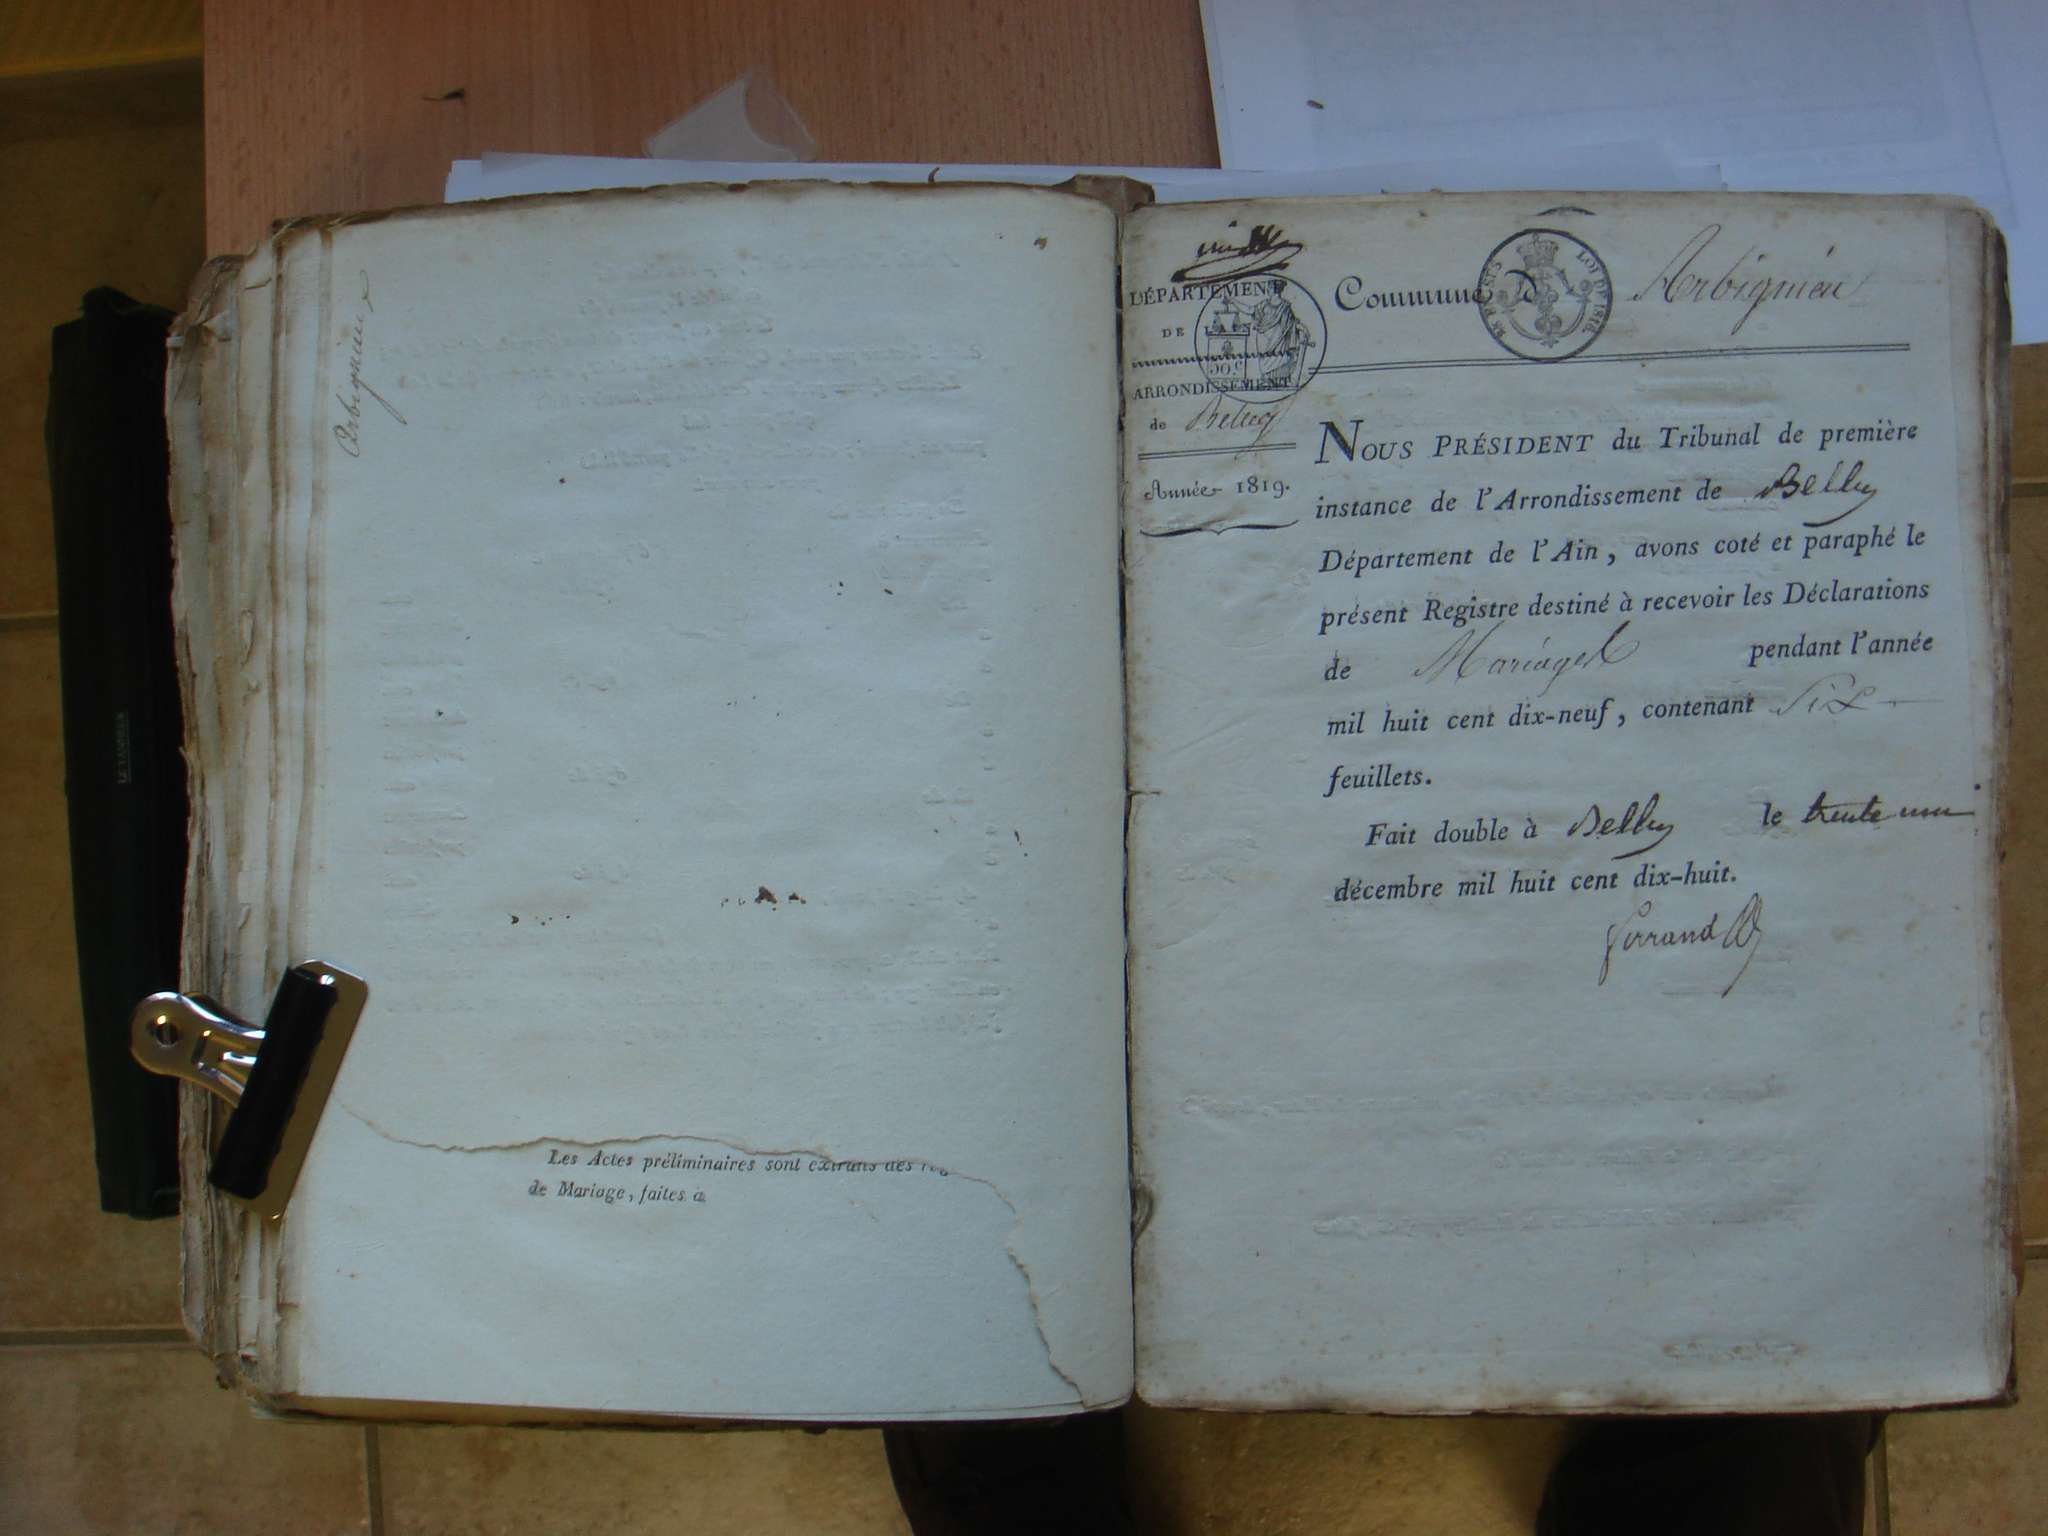 Arbignieu
Les Actes préliminaires sont extraits des reg
de Mariage, faites à
DÉPARTEMENT
DE
ARRONDISSEMENT
de Belley
Année 1819.
Commune d Arbignieu
LOI DE 1816.
50.C
NOUS PRÉSIDENT du Tribunal de première
instance de l'Arrondissement de Belley
Département de l'Ain, avons coté et paraphé le
présent Registre destiné à recevoir les Déclarations
de Mariages pendant l'année
mil huit cent dix-neuf, contenant Six
feuillets.
Fait double à Belley le trente un
décembre mil huit cent dix-huit.